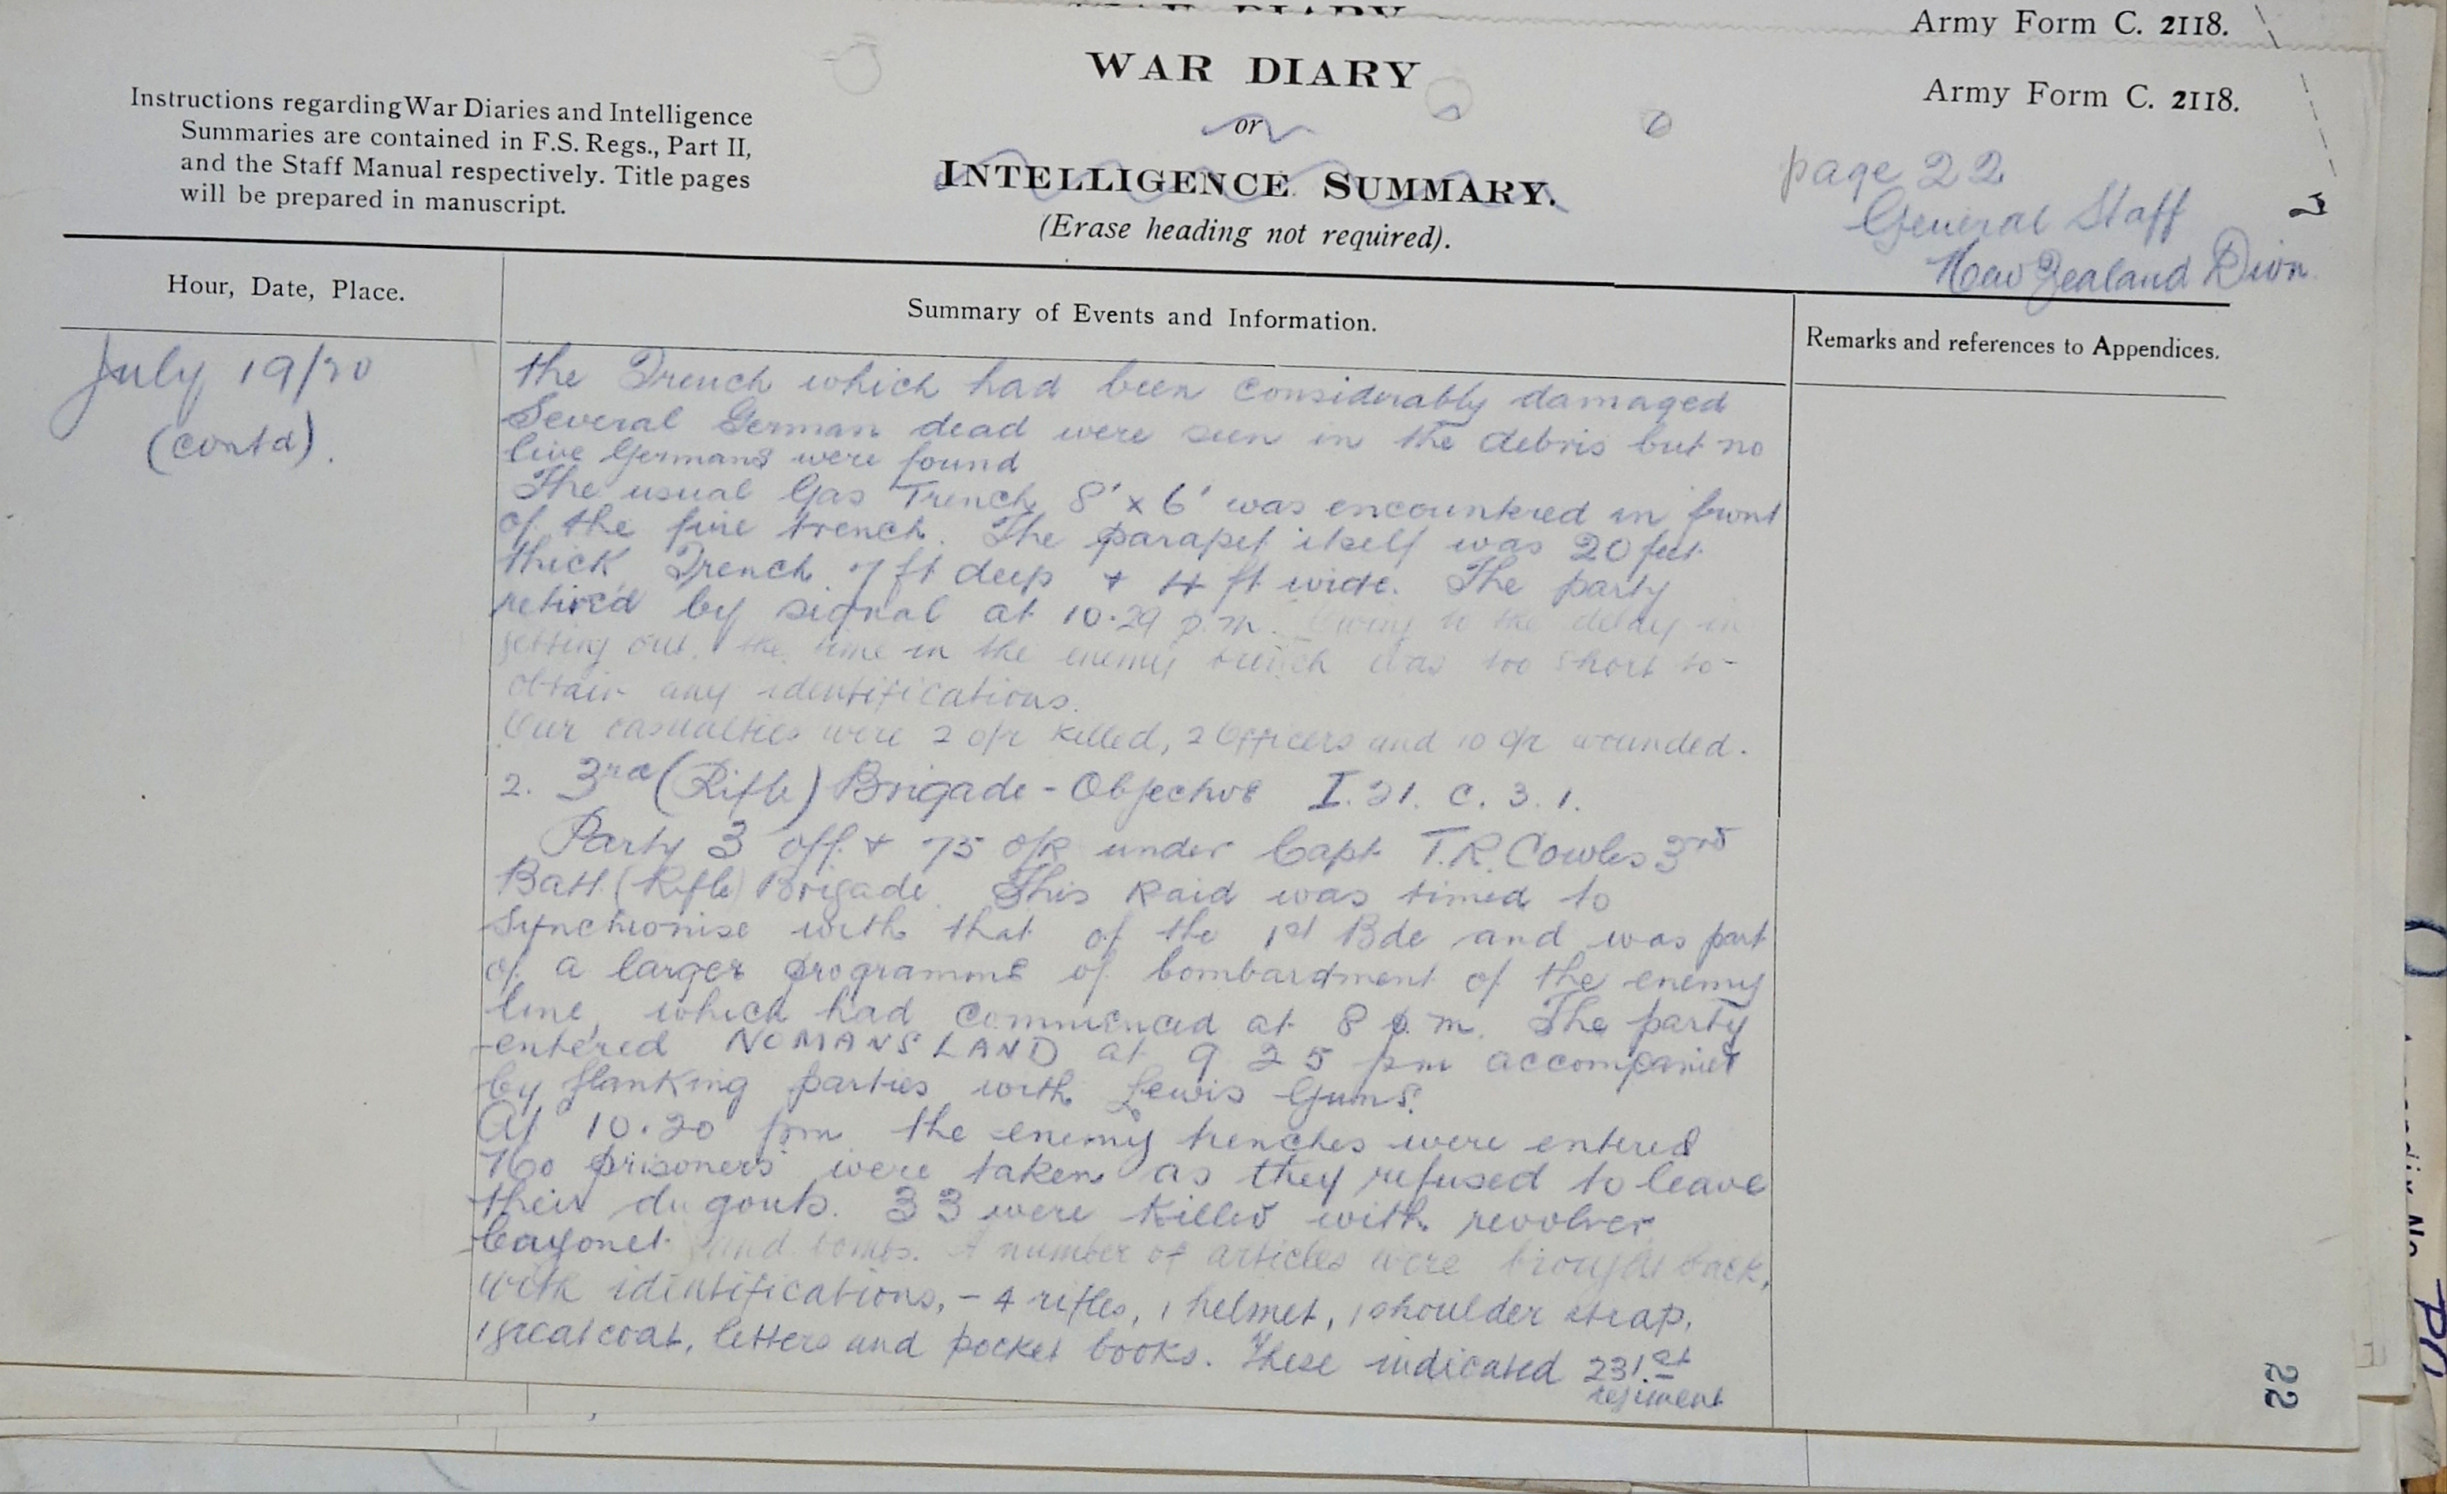 Army Form C. 2118.
WAR DIARY
Army Form C. 2118.
or
INTELLIGENCE SUMMARY.
(Erase heading not required).
Instructions regarding War Diaries and Intelligence
Summaries are contained in F.S. Regs., Part II,
and the Staff Manual respectively. Title pages
will be prepared in manuscript.
page 22
General Staff
New Zealand Divn
Hour, Date, Place.
Summary of Events and Information.
Remarks and references to Appendices.
July 19/20
(contd).
the Trench which had been considerably damaged
Several German dead were seen in the debris but no
live Germans were found
The usual Gas Trench 8' x 6' was encountered in front
of the fire trench. The parapet itself was 20 feet
thick Trench 7 ft deep + 4 ft wide. The party
retired by signal at 10.29 p.m. Owing to the delay in
getting out, the time in the enemy trench was too short to
obtain any identifications.
Our casualties were 2 o/r killed, 2 Officers and 10 o/r wounded.
2. 3rd (Rifle) Brigade - Objective I.21. C. 3. 1.
Party 3 off. + 75 o/R under Capt T.R. Cowles 3rd
Batt. (Rifle) Brigade. This Raid was timed to
synchronise with that of the 1st Bde and was part
of a larger programme of bombardment of the enemy
line, which had commenced at 8 p.m. The party
entered NOMANS LAND at 9 25 pm accompanied
by flanking parties with Lewis Guns.
At 10.20 pm the enemy trenches were entered
No prisoners were taken as they refused to leave
their dugouts. 33 were killed with revolver
bayonet and bombs. A number of articles were brought back,
with identifications, - 4 rifles, 1 helmet, 1 shoulder strap,
1 greatcoat, letters and pocket books. These indicated 231st
regiment
22